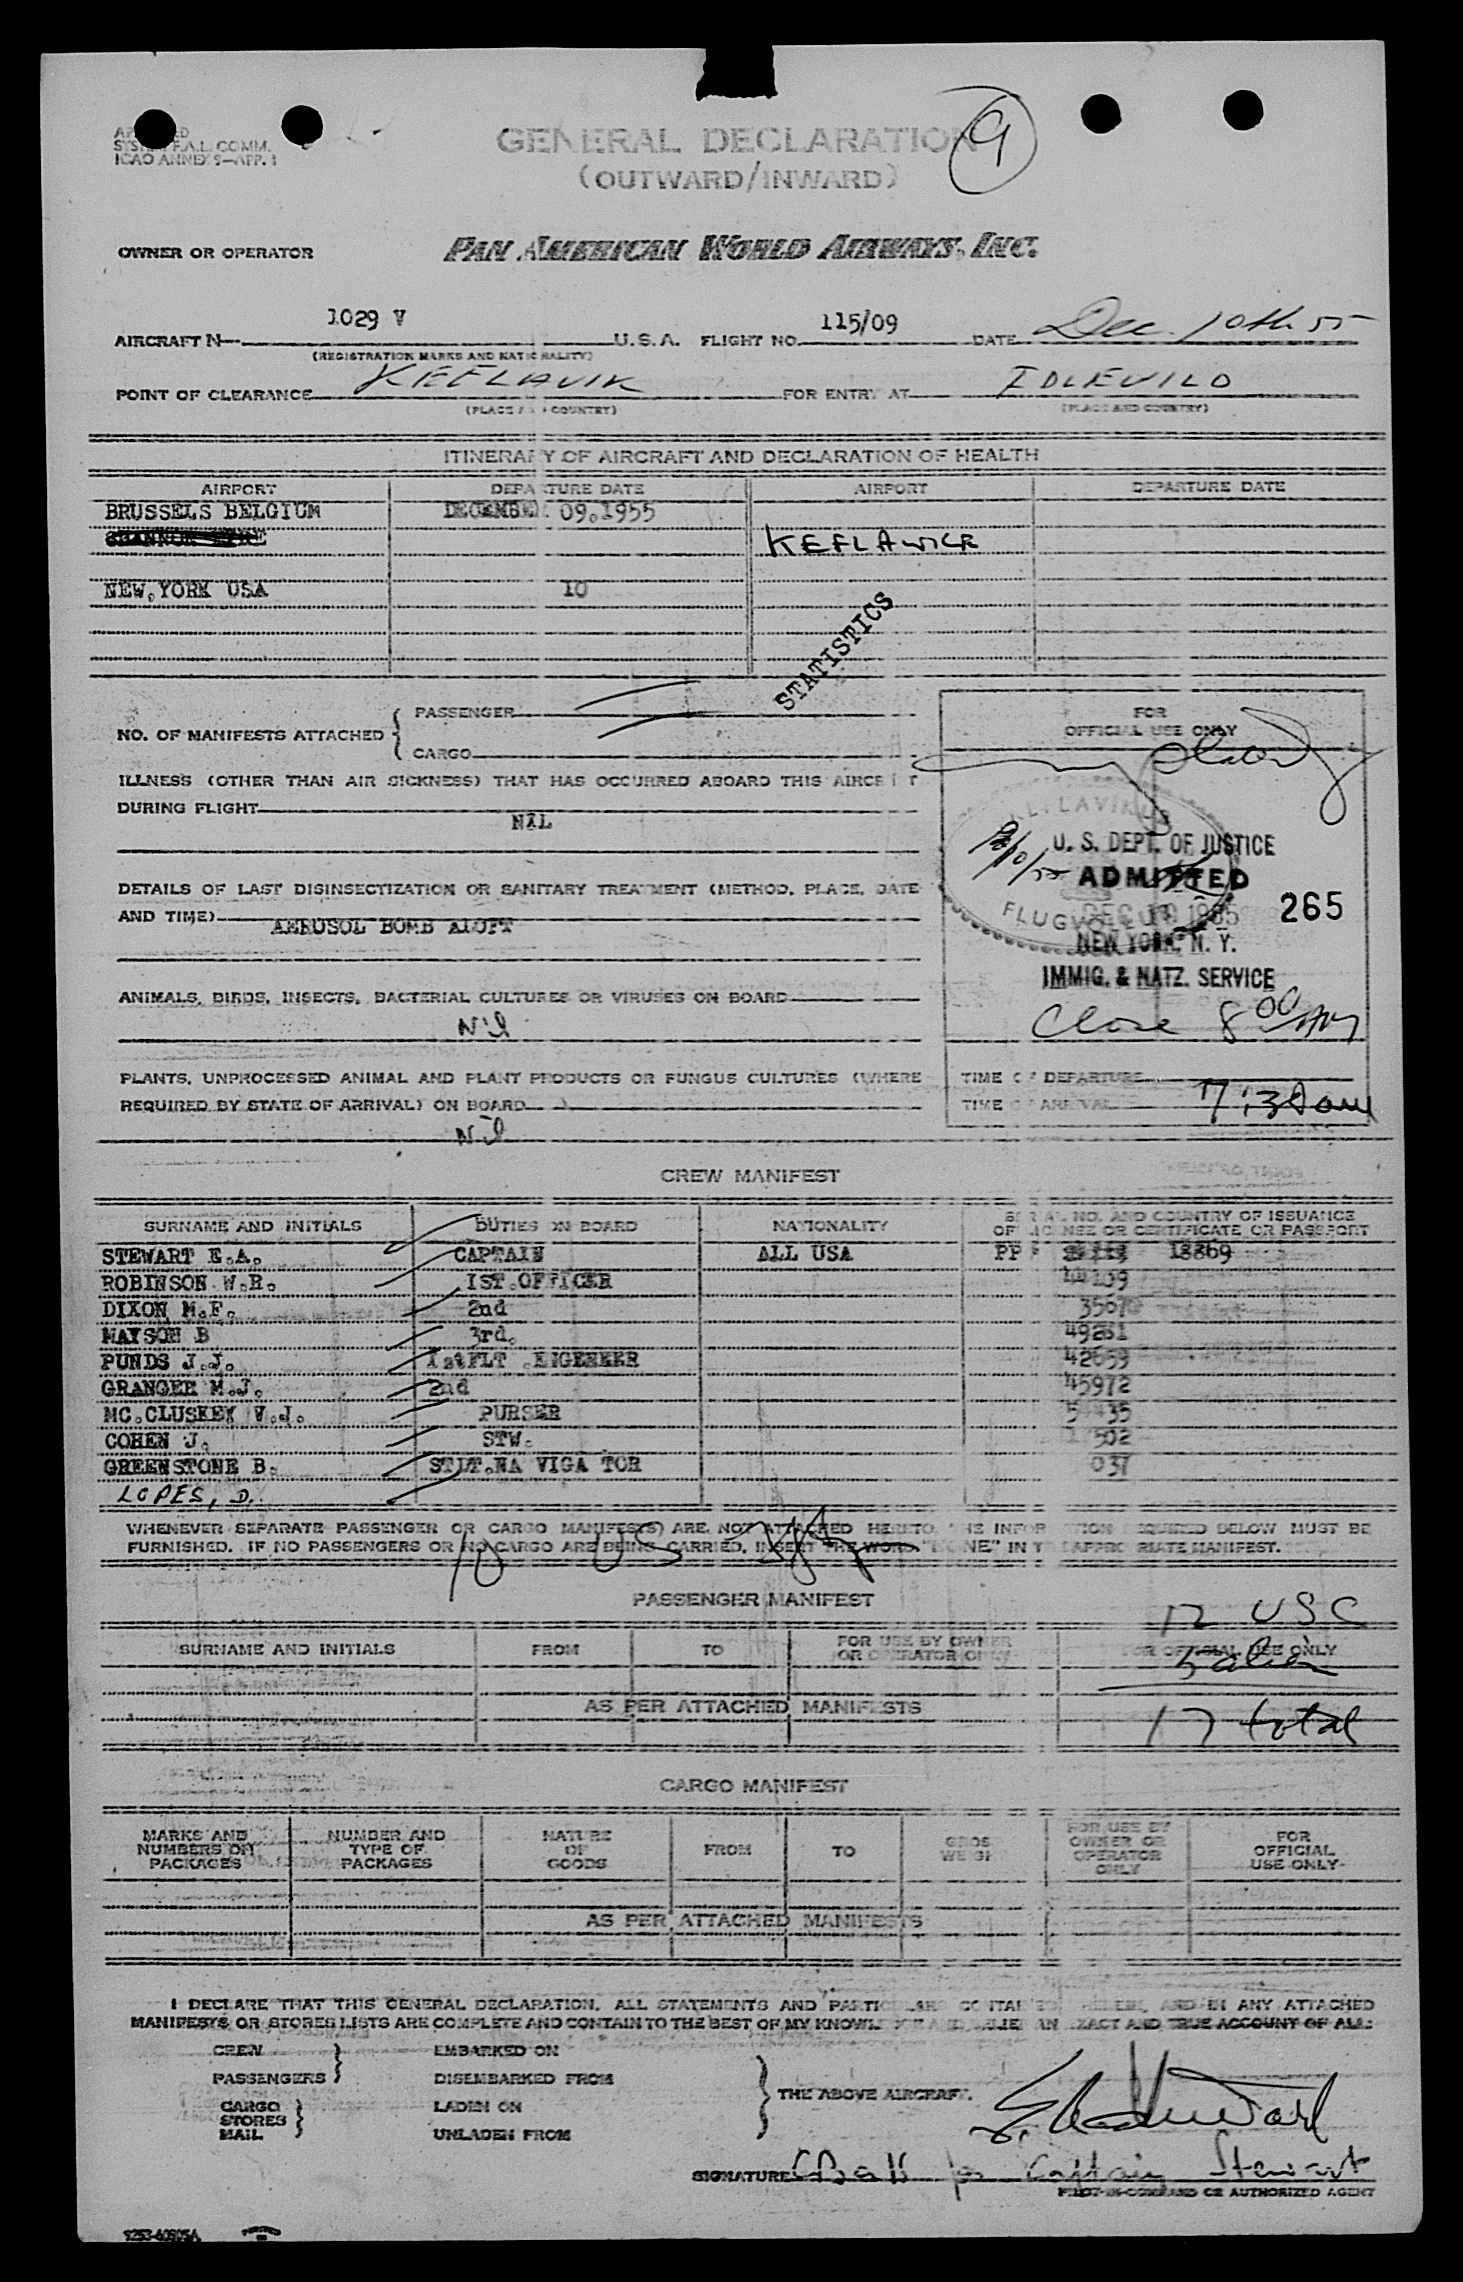 9
SYSTEM F.A.L. COMM.
ICAO ANNEX 9—APP. 1
GENERAL DECLARATION
(OUTWARD/INWARD)
OWNER OR OPERATOR PAN AMERICAN WORLD AIRWAYS, INC.
AIRCRAFT N— 1029 V U.S.A. FLIGHT NO. 115/09 DATE Dec. 10th 55
(REGISTRATION MARKS AND NATIONALITY)
POINT OF CLEARANCE KEFLAVIK FOR ENTRY AT IDLEWILD
(PLACE AND COUNTRY) (PLACE AND COUNTRY)
ITINERARY OF AIRCRAFT AND DECLARATION OF HEALTH
AIRPORT DEPARTURE DATE AIRPORT DEPARTURE DATE
BRUSSELS BELGIUM DECEMBER 09.1955
SHANNON EIRE KEFLAWICK
NEW.YORK USA 10
STATISTICS
NO. OF MANIFESTS ATTACHED { PASSENGER
CARGO
FOR
OFFICIAL USE ONLY
ILLNESS (OTHER THAN AIR SICKNESS) THAT HAS OCCURRED ABOARD THIS AIRCRAFT
DURING FLIGHT
NIL
U. S. DEPT. OF JUSTICE
ADMITTED
DEC 10 1955 265
FLUGVÖLLUR
NEW YORK, N. Y.
IMMIG. & NATZ. SERVICE
Close 8 00 AM
DETAILS OF LAST DISINSECTIZATION OR SANITARY TREATMENT (METHOD, PLACE, DATE
AND TIME)
AERUSOL BOMB ALOFT
ANIMALS, BIRDS, INSECTS, BACTERIAL CULTURES OR VIRUSES ON BOARD
Nil
PLANTS, UNPROCESSED ANIMAL AND PLANT PRODUCTS OR FUNGUS CULTURES (WHERE
REQUIRED BY STATE OF ARRIVAL) ON BOARD
Nil
TIME OF DEPARTURE
TIME OF ARRIVAL 7:30am
CREW MANIFEST
SURNAME AND INITIALS DUTIES ON BOARD NATIONALITY SERIAL NO. AND COUNTRY OF ISSUANCE
OF LICENSE OR CERTIFICATE OR PASSPORT
STEWART E.A. CAPTAIN ALL USA PP 18869
ROBINSON W.R. IST.OFFICER
DIXON M.F. 2nd
MAYSON B 3rd. 49261
PUNDS J.J. 1stFLT .ENGENEER 42659
GRANGER M.J. 2nd 45972
MC.CLUSKEY V.J. PURSER
COHEN J. STW.
GREENSTONE B. STDT.NA VIGA TOR
LOPES, D.
WHENEVER SEPARATE PASSENGER OR CARGO MANIFESTS ARE NOT ATTACHED HERETO, THE INFORMATION REQUIRED BELOW MUST BE
FURNISHED. IF NO PASSENGERS OR NO CARGO ARE BEING CARRIED, INSERT THE WORD "NONE" IN THE APPROPRIATE MANIFEST.
10 US
PASSENGER MANIFEST
12 USC
SURNAME AND INITIALS FROM TO FOR USE BY OWNER
OR OPERATOR ONLY FOR OFFICIAL USE ONLY
5 alien
AS PER ATTACHED MANIFESTS
17 total
CARGO MANIFEST
MARKS AND
NUMBERS ON
PACKAGES
NUMBER AND
TYPE OF
PACKAGES
NATURE
OF
GOODS
FROM
TO
GROSS
WEIGHT
FOR USE BY
OWNER OR
OPERATOR
ONLY
FOR
OFFICIAL
USE ONLY
AS PER ATTACHED MANIFESTS
I DECLARE THAT THIS GENERAL DECLARATION, ALL STATEMENTS AND PARTICULARS CONTAINED HEREIN, AND IN ANY ATTACHED
MANIFESTS OR STORES LISTS ARE COMPLETE AND CONTAIN TO THE BEST OF MY KNOWLEDGE AND BELIEF AN EXACT AND TRUE ACCOUNT OF ALL:
CREW } EMBARKED ON
PASSENGERS } DISEMBARKED FROM
CARGO LADEN ON
STORES }
MAIL UNLADEN FROM
} THE ABOVE AIRCRAFT.
E. A. Stewart
SIGNATURE CBall for Captain Stewart
PILOT-IN-COMMAND OR AUTHORIZED AGENT